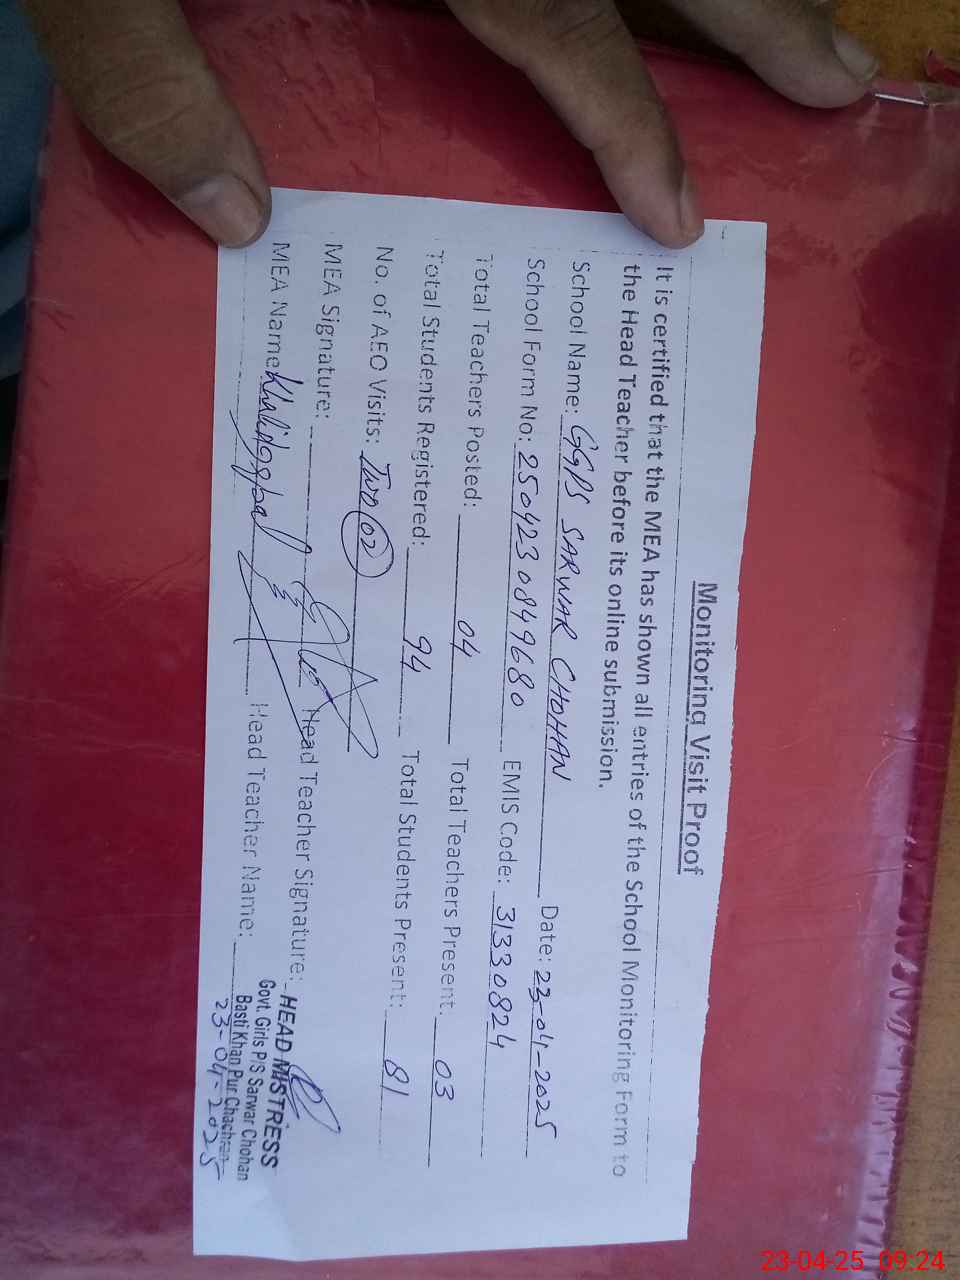 Monitoring Visit Proof
It is certified that the MEA has shown all entries of the School Monitoring Form to
the Head Teacher before its online submission.
School Name: GGPS SARWAR CHOHAN Date: 23-04-2025
School Form No: 2504230849680 EMIS Code: 31330824
Total Teachers Posted: 04 Total Teachers Present: 03
Total Students Registered: 94 Total Students Present: 81
No. of AEO Visits: Two 02
MEA Signature: Head Teacher Signature:
MEA Name: Khalid Iqbal Head Teacher Name:
HEAD MISTRESS
Govt. Girls P/S Sarwar Chohan
Basti Khan Pur Chachran
23-04-2025
23-04-25 09:24